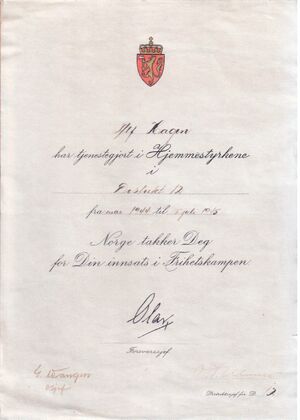 Hagen
har tjenestegjort i Hjemmestyrkene
i
Distrikt 12
fra mar 1944 til juli 1945
Norge takker Deg
for Din innsats i Frihetskampen.
Olav
Forsvarssjef
Distriktssjef for D.